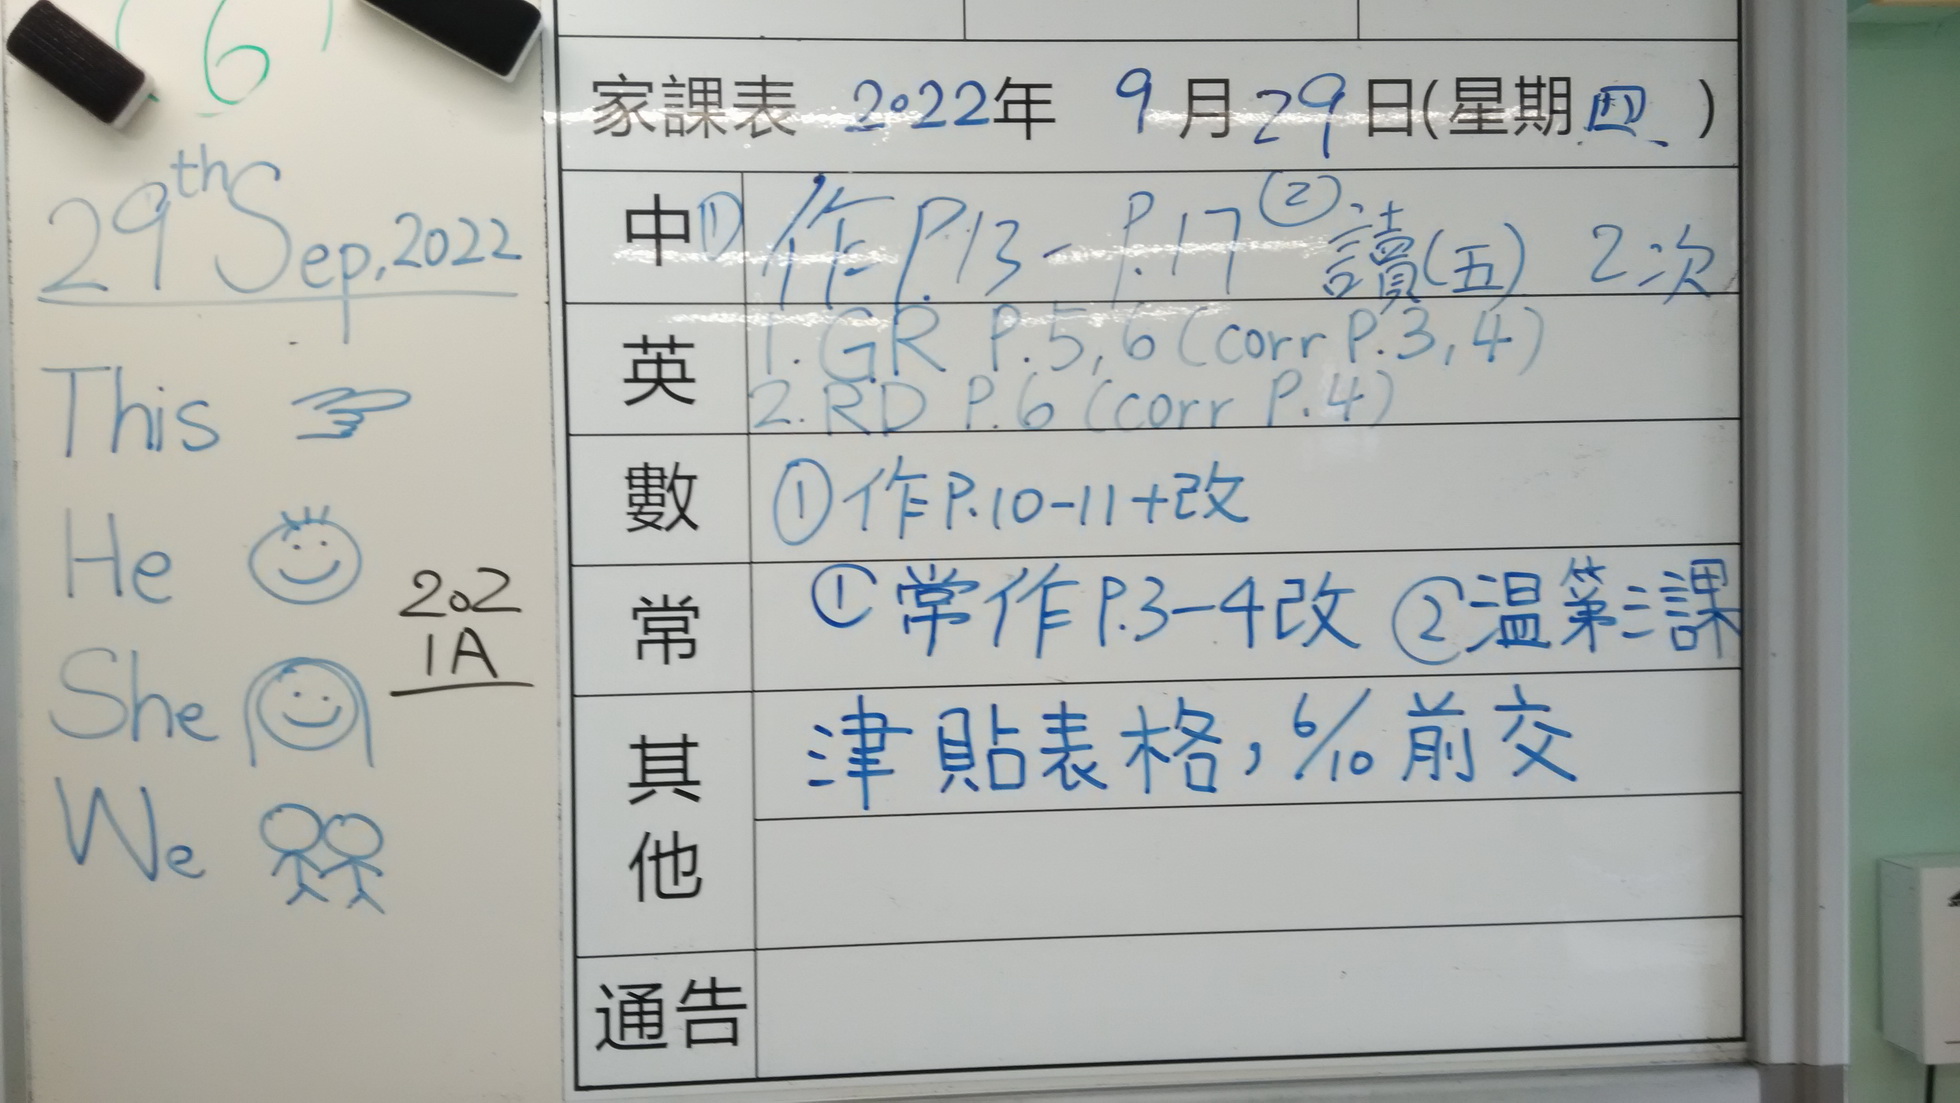 6
29th Sep, 2022
This
He
She
We
202
1A
家課表 2022年 9月29日(星期四)
中 ① 作P.13-P.17 ② 讀(五) 2次
英 1. GR P.5,6 (corr P.3,4)
2. RD P.6 (corr P.4)
數 ①作P.10-11+改
常 ①常作P.3-4改 ②温第三課
其他 津貼表格, 6/10前交
通告